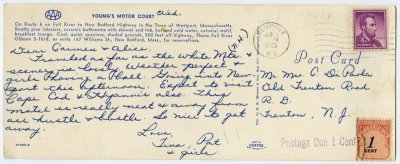 AAA
YOUNG'S MOTOR COURT
On Route 6 on Fall River to New Bedford Highway in the Town of Westport, Massachusetts.
Knotty pine interiors, ceramic bathrooms with shower and tub, hot and cold water, colonial motif,
breakfast lounge. Cool, quiet, spacious, shaded grounds, 600 feet off highway. Phone Fall River
OSborn 2-7618, or write 167 Williams St., New Bedford, Mass., for reservations.
Dear Carmen & Alice,
Traveled as far as the White Mts
scenery is lovely. Weather perfect &
girls having a ball. Going into New
port this afternoon. Expect to visit
Cape Cod & Hyannis also. This
motel is really neat & away from
all hustle & bustle. So nice to get
away.
Love,
Pat
& girls
Post Card
Mr. Mrs. C. Di Paola
Old Trenton Road
R. D.
Trenton, N. J.
Postage Due 1 Cent
1
CENT